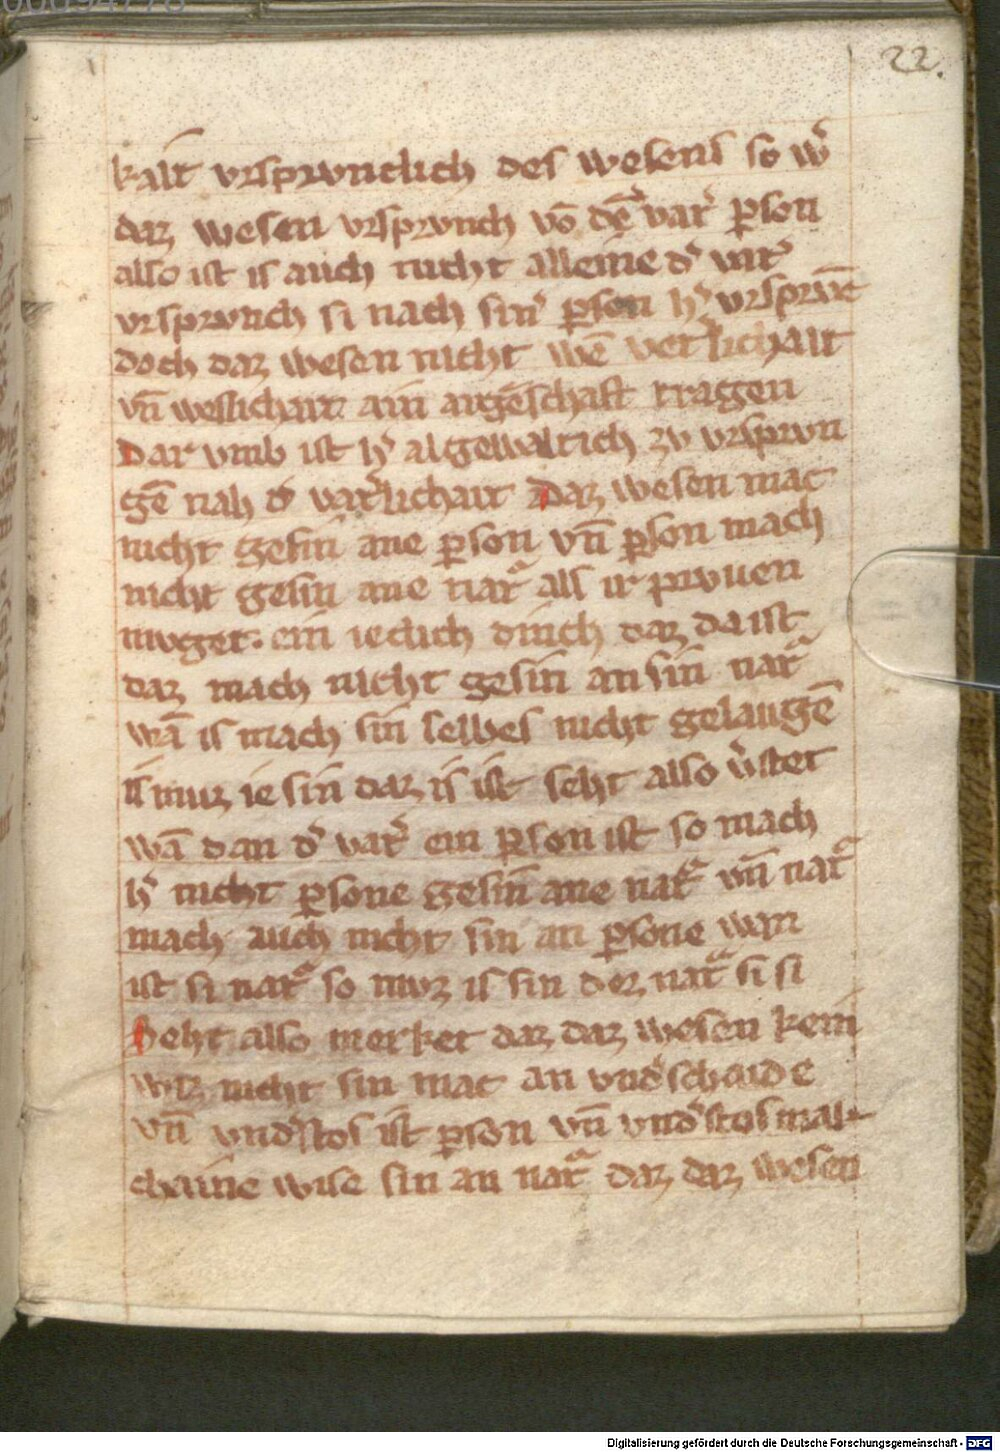 22.
kait vrsprvnclich des wesens so wͥ
daz wesen vrsprvnch vō dē vatͥ pson
also ist is auch nicht alleine dͥ vatͥ
vrsprvnch si nach sinͥ pson hͥ vrsprvīc
doch daz wesen nicht wē vetͥlichait
vn̄ weslichait ain aigēschaft tragen
Dar vmb ist hͥ algewaltich zv vrsprvn
gē nah dͥ vatͥlichait Daz wesen mac
nicht gesin ane pson vn̄ pson mach
nicht gesin ane natͣ als ir prvuen
mvget. ein ieclich dinch daz da ist
daz mach nicht gesin an sin natͣ
wā is mach sin selbes nicht gelaugē
is muz ie sin daz is ist seht also vͥstet
wā dan dͥ vatͥ ein pson ist so mach
hͥ nicht psone gesin ane natͣ vn̄ natͣ
mach auch nicht sin an psone wan
ist si natͣ so mvz is sin dez natͣ si si
Seht also merket daz daz wesen kein
wiz nicht sin mac an vndͥschaide
vn̄ vndͥstos ist pson vn̄ vndͥstos mak
chaine wise sin an natͣ daz daz wesen
Digitalisierung gefördert durch die Deutsche Forschungsgemeinschaft - DFG